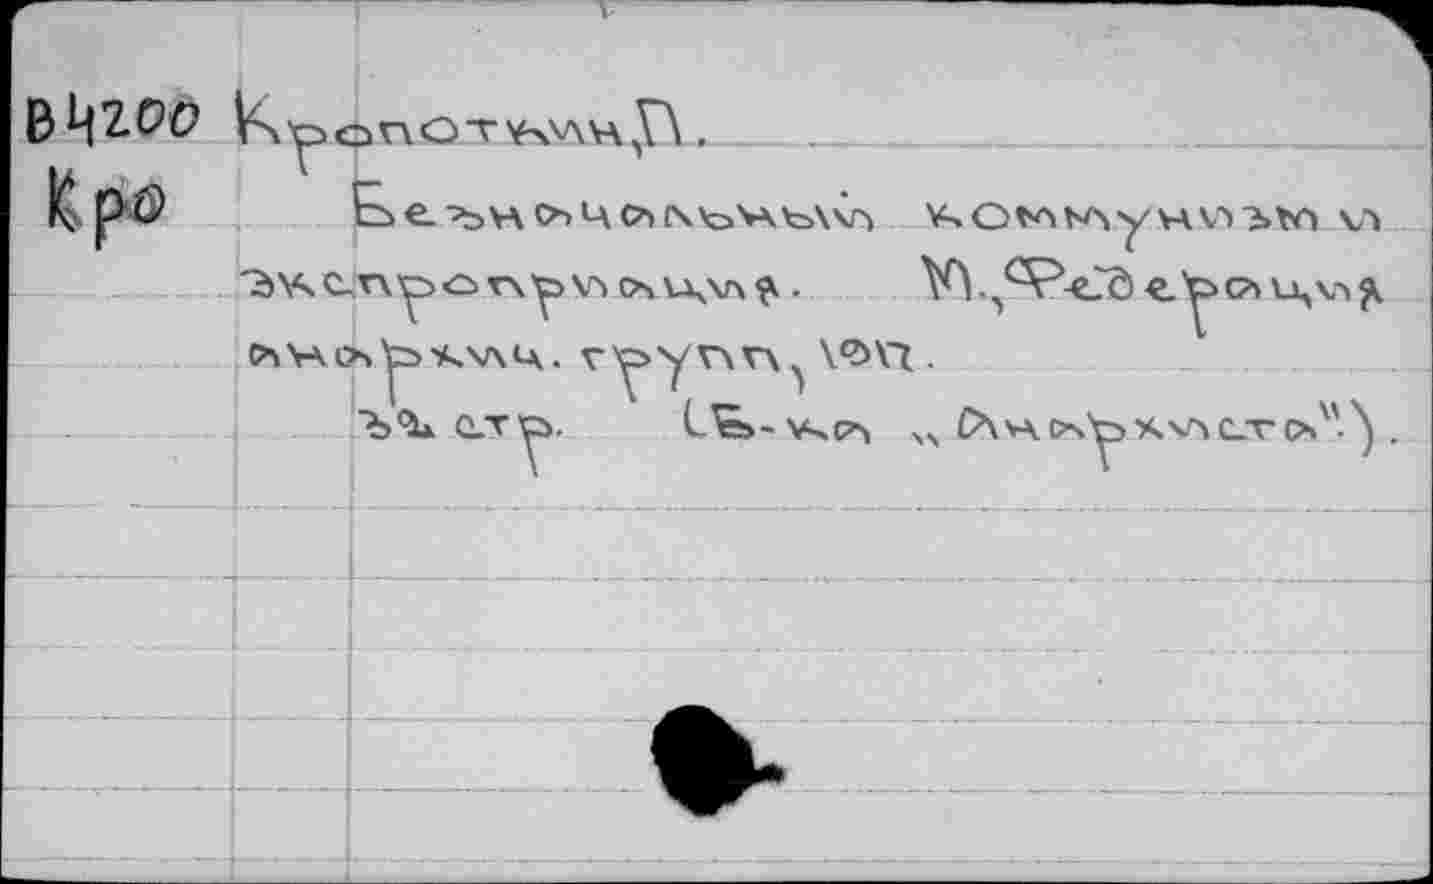 В4200 Кропоткин,П.
Кро Безначальный коммунизм и
экспроприация. М.,Федерация
анархич. групп, 1917.
32 стр. (Б-ка „Анархиста".)